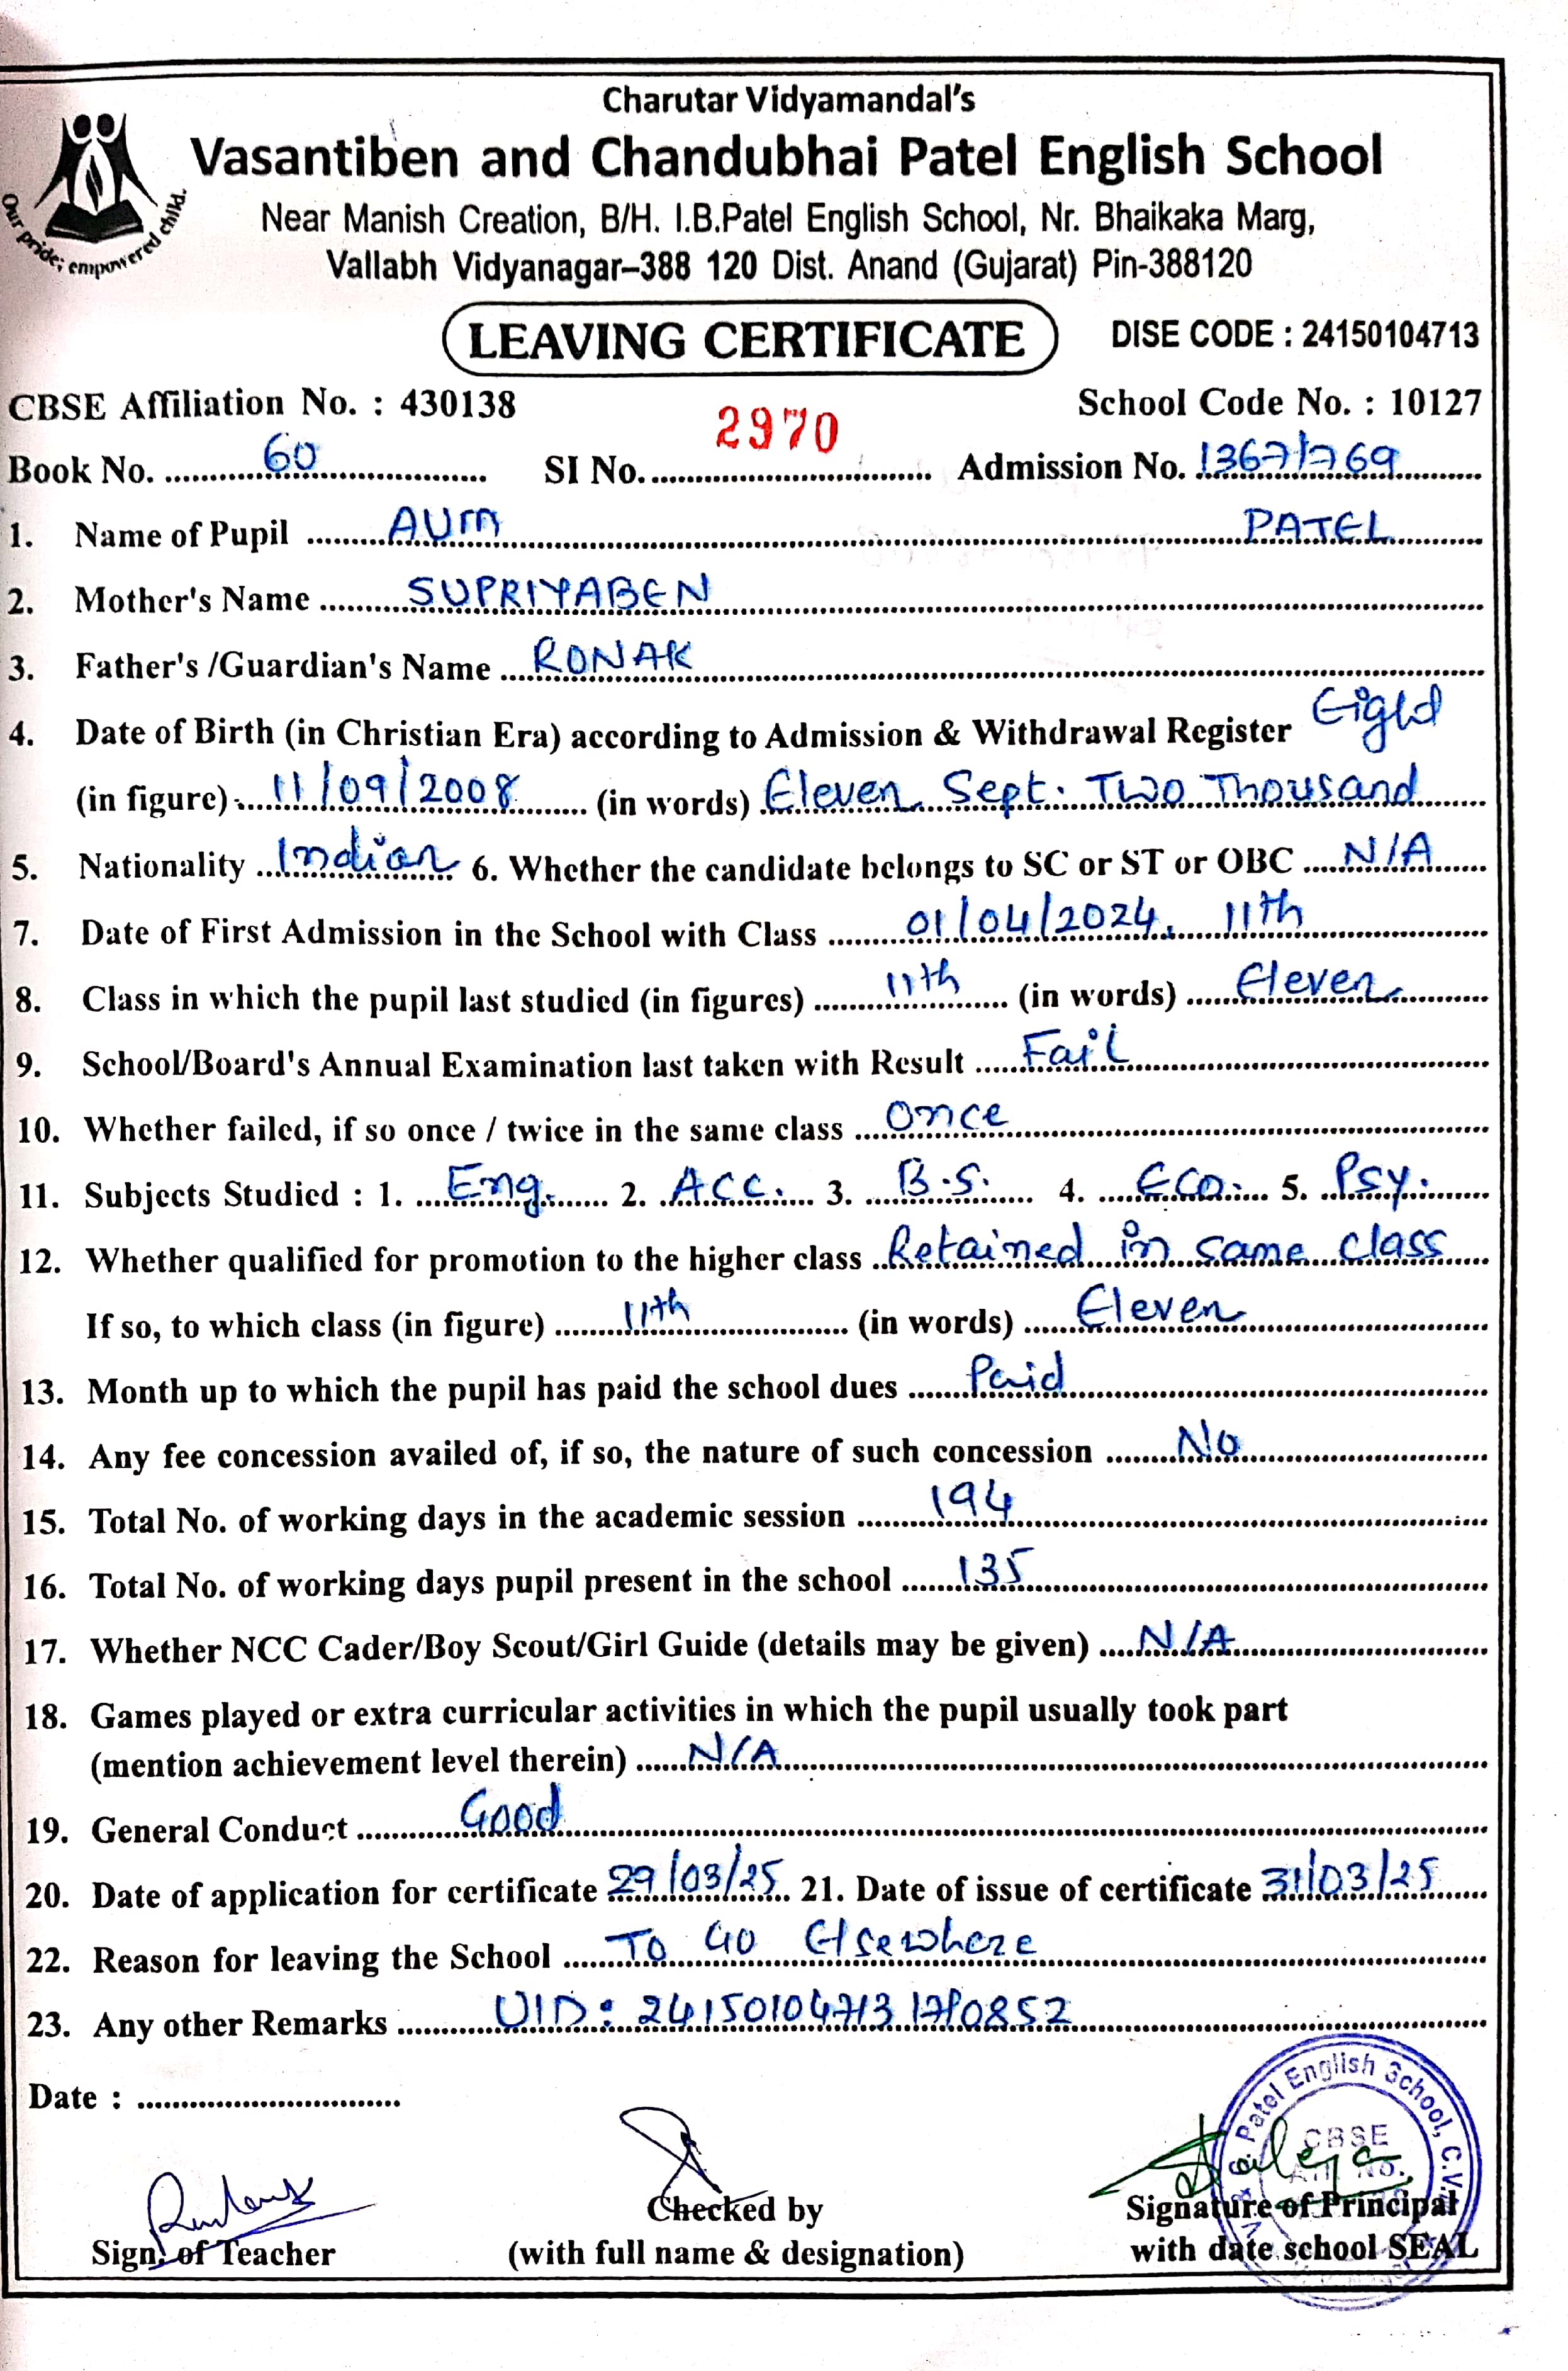 Charutar Vidyamandal's
Vasantiben and Chandubhai Patel English School
Near Manish Creation, B/H. I.B.Patel English School, Nr. Bhaikaka Marg,
Vallabh Vidyanagar–388 120 Dist. Anand (Gujarat) Pin-388120
Our pride; empowered child.
LEAVING CERTIFICATE DISE CODE : 24150104713
CBSE Affiliation No. : 430138 School Code No. : 10127
Book No. 60 SI No. 2970 Admission No. 1367/769
1. Name of Pupil AUM PATEL
2. Mother's Name SUPRIYABEN
3. Father's /Guardian's Name RONAK
4. Date of Birth (in Christian Era) according to Admission & Withdrawal Register Eight
(in figure) 11/09/2008 (in words) Eleven Sept. Two Thousand
5. Nationality Indian 6. Whether the candidate belongs to SC or ST or OBC N/A
7. Date of First Admission in the School with Class 01/04/2024, 11th
8. Class in which the pupil last studied (in figures) 11th (in words) Eleven
9. School/Board's Annual Examination last taken with Result Fail
10. Whether failed, if so once / twice in the same class Once
11. Subjects Studied : 1. Eng. 2. ACC. 3. B.S. 4. ECO. 5. Psy.
12. Whether qualified for promotion to the higher class Retained in same class
If so, to which class (in figure) 11th (in words) Eleven
13. Month up to which the pupil has paid the school dues Paid
14. Any fee concession availed of, if so, the nature of such concession No
15. Total No. of working days in the academic session 194
16. Total No. of working days pupil present in the school 135
17. Whether NCC Cader/Boy Scout/Girl Guide (details may be given) N/A
18. Games played or extra curricular activities in which the pupil usually took part
(mention achievement level therein) N/A
19. General Conduct Good
20. Date of application for certificate 29/03/25 21. Date of issue of certificate 31/03/25
22. Reason for leaving the School To Go Elsewhere
23. Any other Remarks UID: 241501047131710852
Date :
Patel English School, C.V.
CBSE
Sign. of Teacher
Checked by
(with full name & designation)
Signature of Principal
with date school SEAL